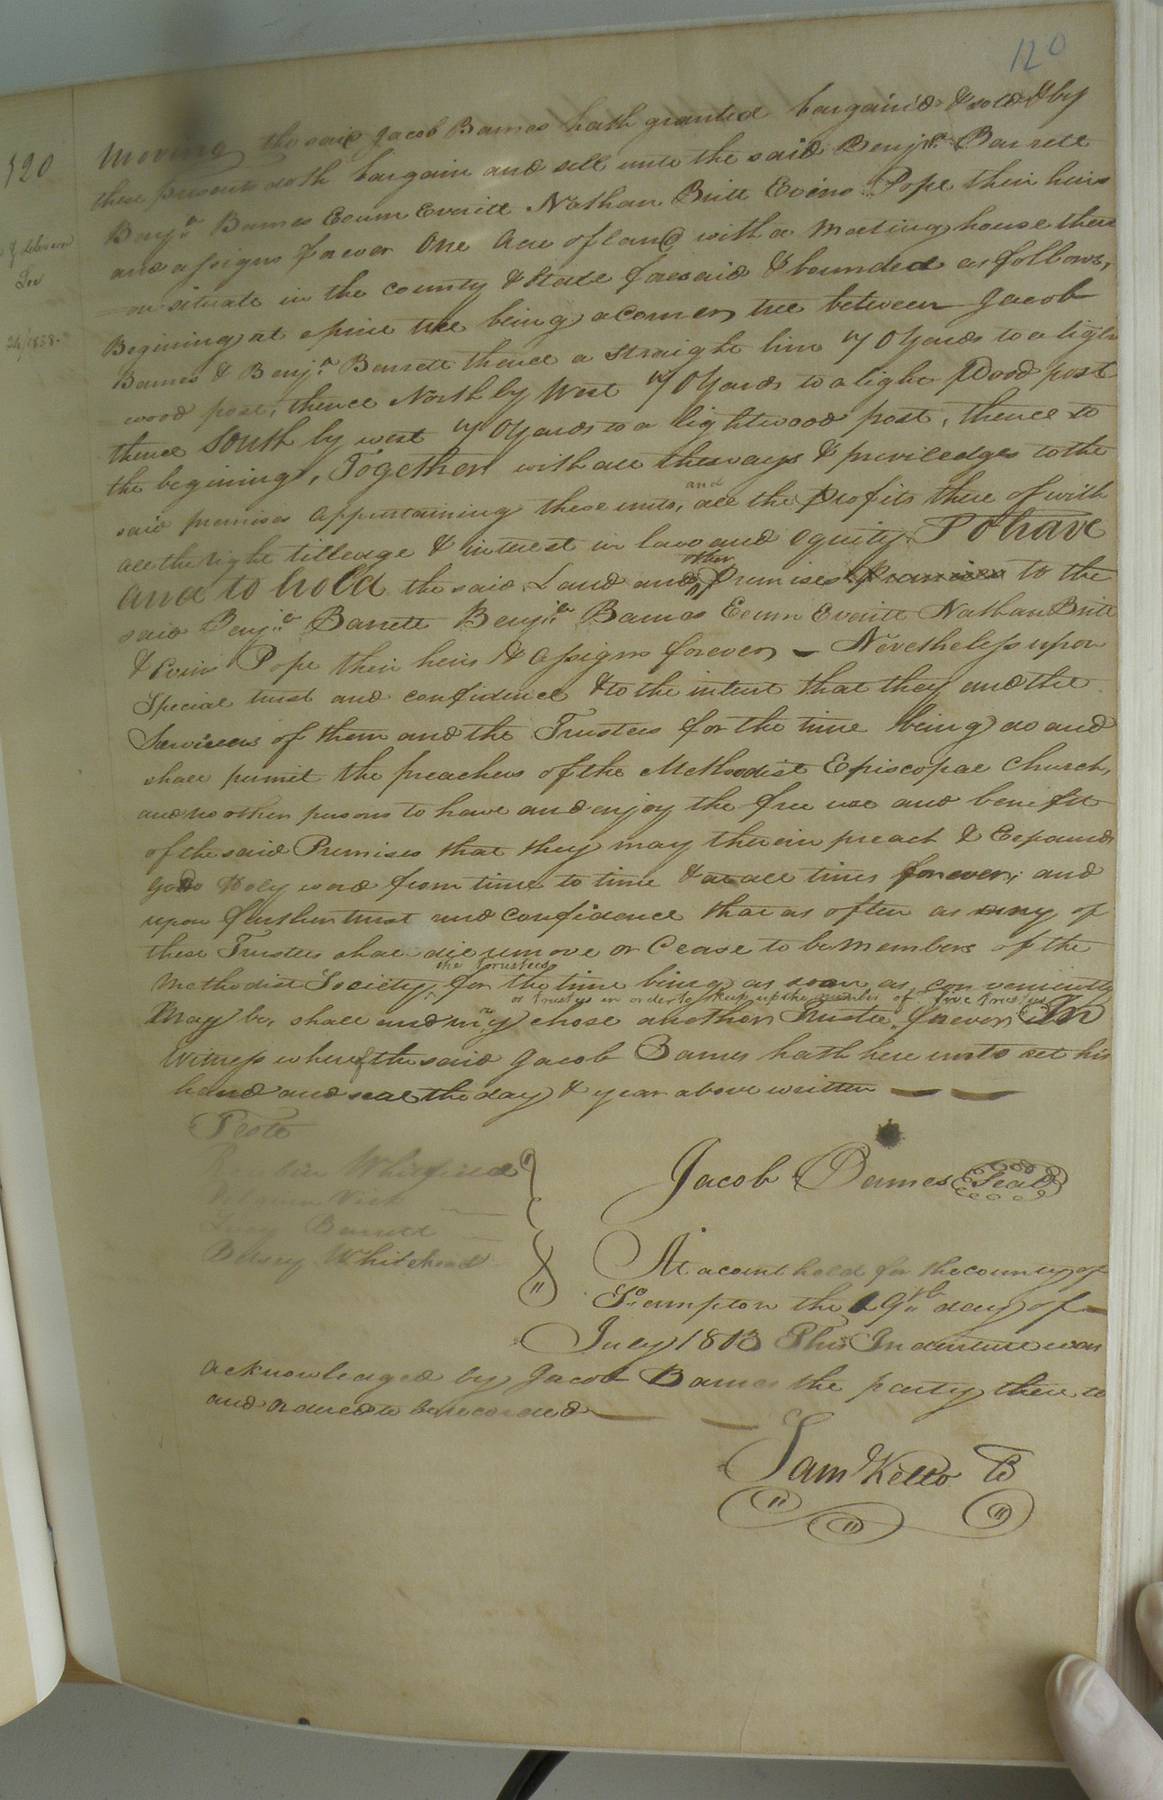 120
120
24/1838.
Moving the said Jacob Barnes hath granted bargain'd & sold & by
these presents doth bargain and sell unto the said Benj.ª Barrett
Benj.ª Barnes Ecum Everitt Nathan Britt Evins Pope their heirs
and assigns forever One Acre of land with a meeting house there
on situate in the county & State foresaid & bounded as follows,
Begining at a pine tree being a Corner tree between Jacob
Barnes & Benj.ª Barrett thence a straight line 70 yards to a light
wood post, thence North by West 70 yards to a light Wood post
thence South by west 70 yards to a lightwood post, thence to
the begining, Together with all the ways & priviledges to the
said premises appurtaining these unto, and all the Profits there of with
all the right titleage & interest in law and equity To have
and to hold the said Land and other Premises Premises to the
said Benj.ª Barrett Benj.ª Barnes Ecum Everitt Nathan Britt
& Evins Pope their heirs & assigns forever – Nevertheless upon
Special trust and confidence & to the intent that they and the
Survivers of them and the Trustees for the time being do and
shall permit the preachers of the Methodist Episcopal Church,
and no other persons to have and enjoy the free use and benefit
of the said Premises that they may therein preach & Expound
Gods Holy word from time to time & at all times forever; and
upon further trust and confidence that as often as any of
these Trustees shall die remove or Cease to be members of the
Methodist Society, the Trustees for the time being as soon as conveniently
or trustees in order to keep up the number of five trustees
May be, shall and may chose another Trustee forever In
Witness where of the said Jacob Barnes hath here unto set his
hand and seal the day & year above written
Teste
Whitfield
Vick
Barrett
Betsey Whitehead
Jacob Barnes Seal
At a court held for the county of
So.ampton the 19th day of
July 1803 This Indenture was
acknowledged by Jacob Barnes the party there to
and ordered to be recorded
Sam Kello C